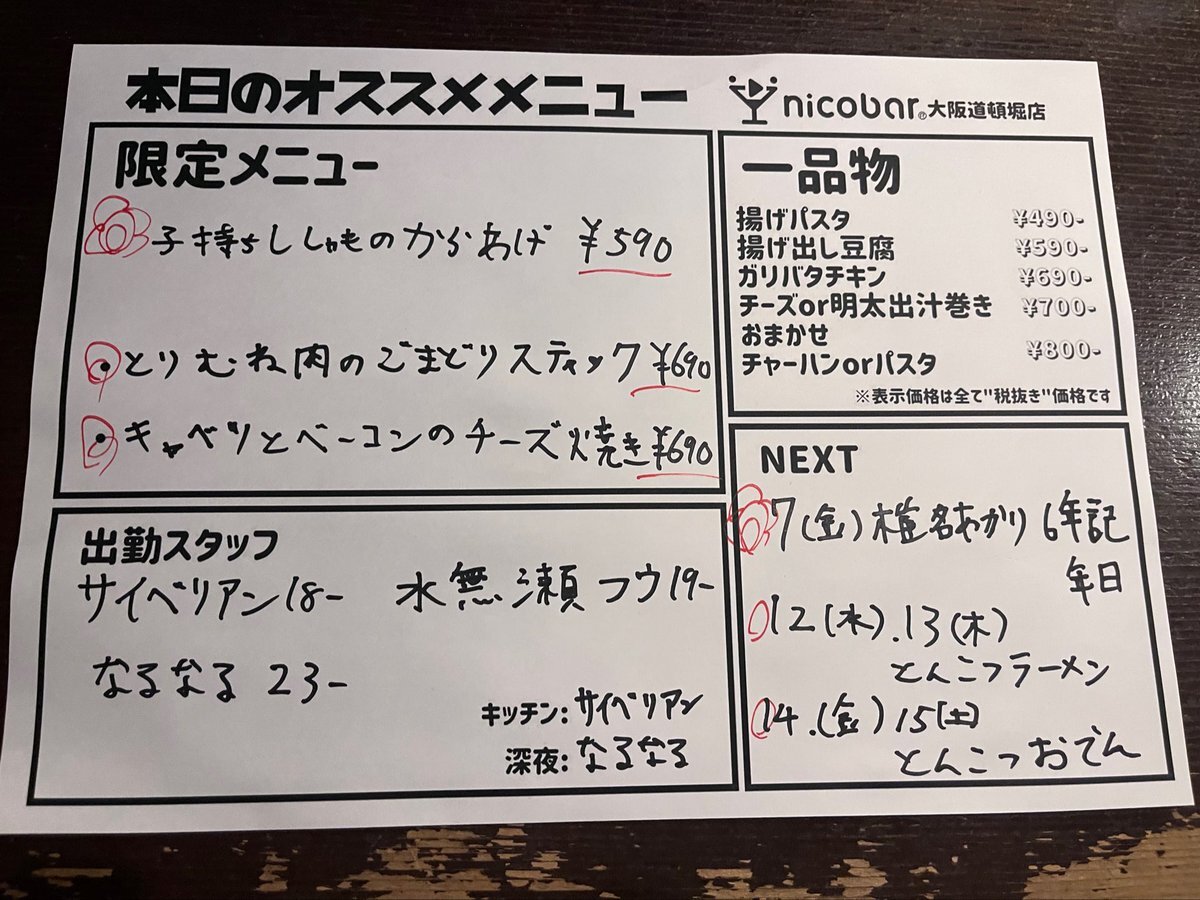 本日のオススメメニュー
nicobar® 大阪道頓堀店
限定メニュー
子持ちししゃものからあげ ¥590
・とりむね肉のごまどりスティック ¥690
・キャベツとベーコンのチーズ焼き ¥690
一品物
揚げパスタ ¥490-
揚げ出し豆腐 ¥590-
ガリバタチキン ¥690-
チーズor明太出汁巻き ¥700-
おまかせ
チャーハンorパスタ ¥800-
※表示価格は全て"税抜き"価格です
出勤スタッフ
サイベリアン18- 水無瀬フウ19-
なるなる 23-
キッチン: サイベリアン
深夜: なるなる
NEXT
7(金)椎名あかり 6年記
年日
12(水).13(木)
とんこつラーメン
14.(金)15(土)
とんこつおでん